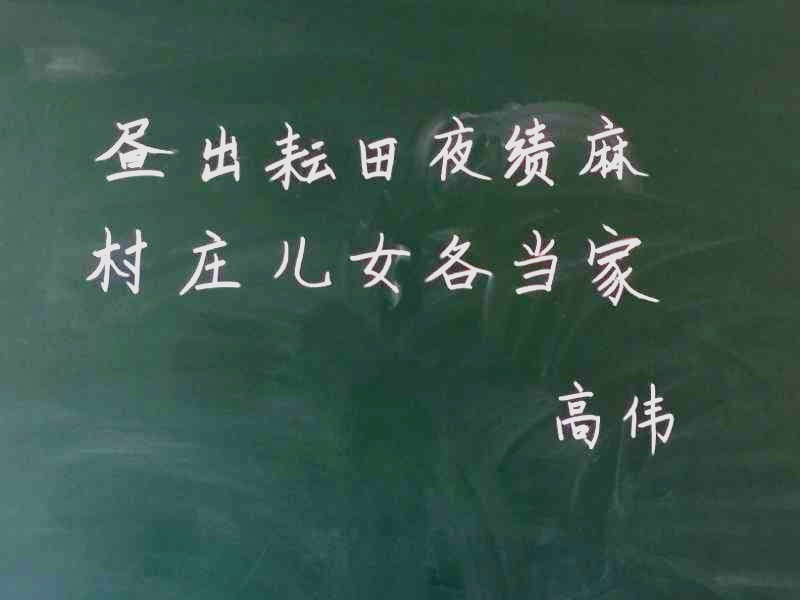 昼出耘田夜绩麻
村庄儿女各当家
高伟